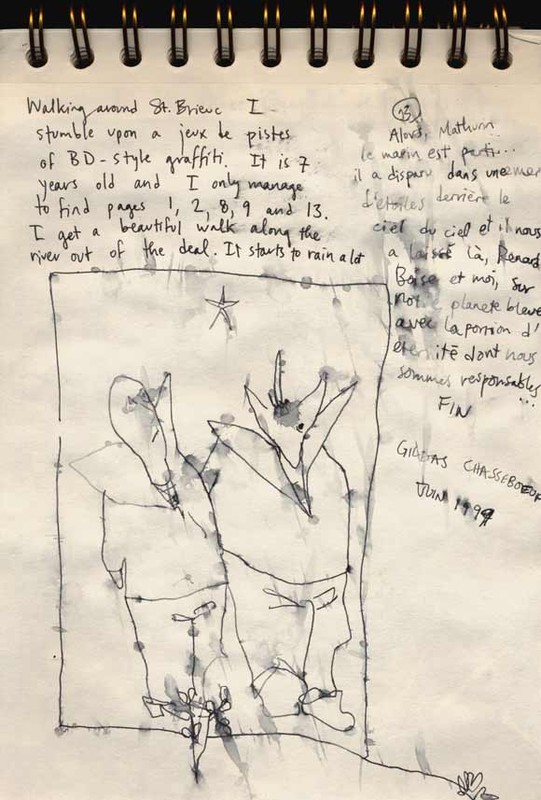 Walking around St. Brieuc I
stumble upon a jeux de pistes
of BD-style graffiti. It is 7
years old and I only manage
to find pages 1, 2, 8, 9 and 13.
I get a beautiful walk along the
river out of the deal. It starts to rain a lot
13
Alors, Mathurin
le marin est parti...
il a disparu dans une mer
d'étoiles derrière le
ciel du ciel et il nous
a laissé là, Renard
Boise et moi, sur
notre planete bleue
avec la portion d'
éternité dont nous
sommes responsables
...
FIN
GILDAS CHASSEBOEUF
JUIN 1999